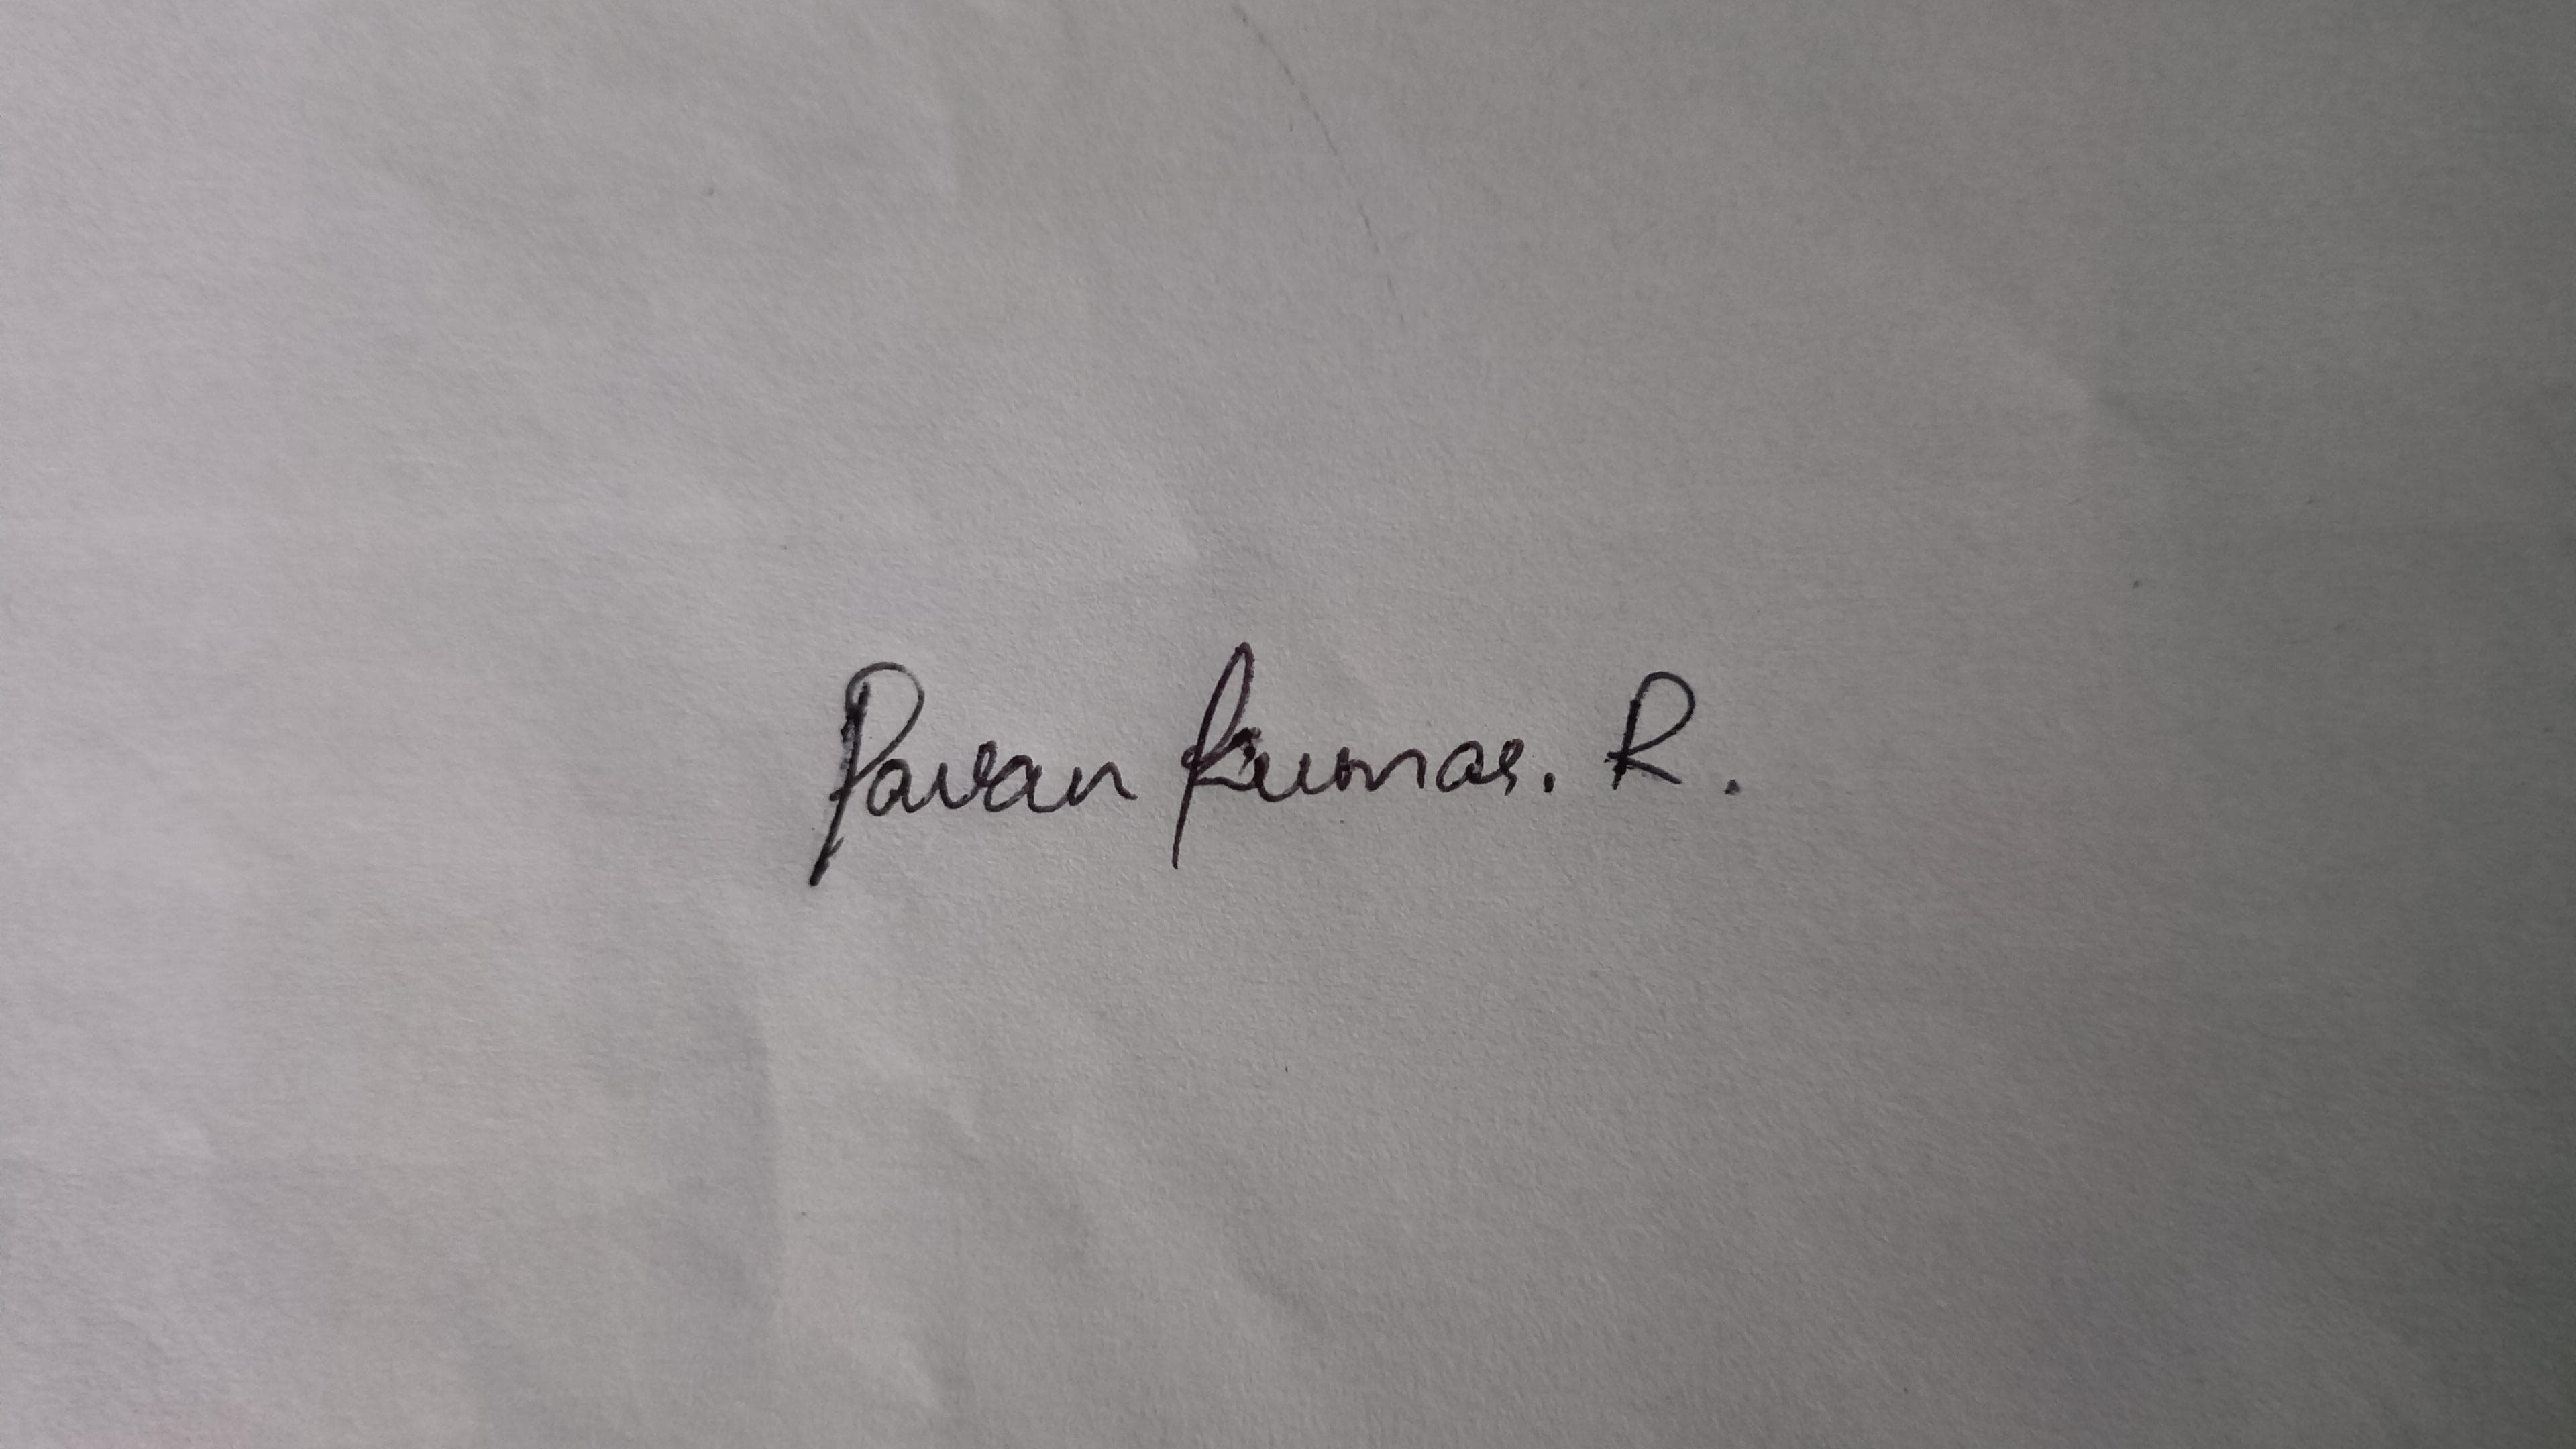 Pavan Kumar. R.